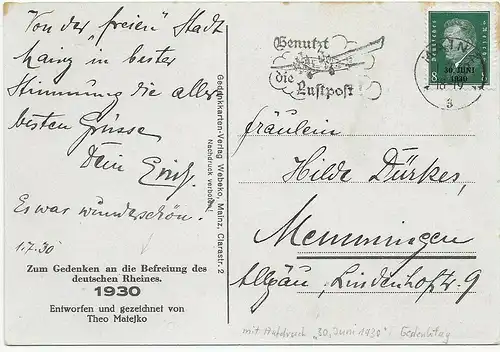 Von der „freien" Stadt
Mainz in bester
Stimmung die aller
besten Grüsse
Dein Erich.
Es war wunderschön.
1.7.30
Zum Gedenken an die Befreiung des
deutschen Rheines.
1930
Entworfen und gezeichnet von
Theo Matejko
Gedenkkarten-Verlag Webeko, Mainz, Clarastr. 2
Nachdruck verboten!
Benutzt
die
Luftpost
MAINZ
3
30. JUNI
1930
8
Fräulein
Hilde Dürkes,
Memmingen
Allgäu, Lindenhofstr. 9
mit Aufdruck "30. Juni 1930" Gedenktag